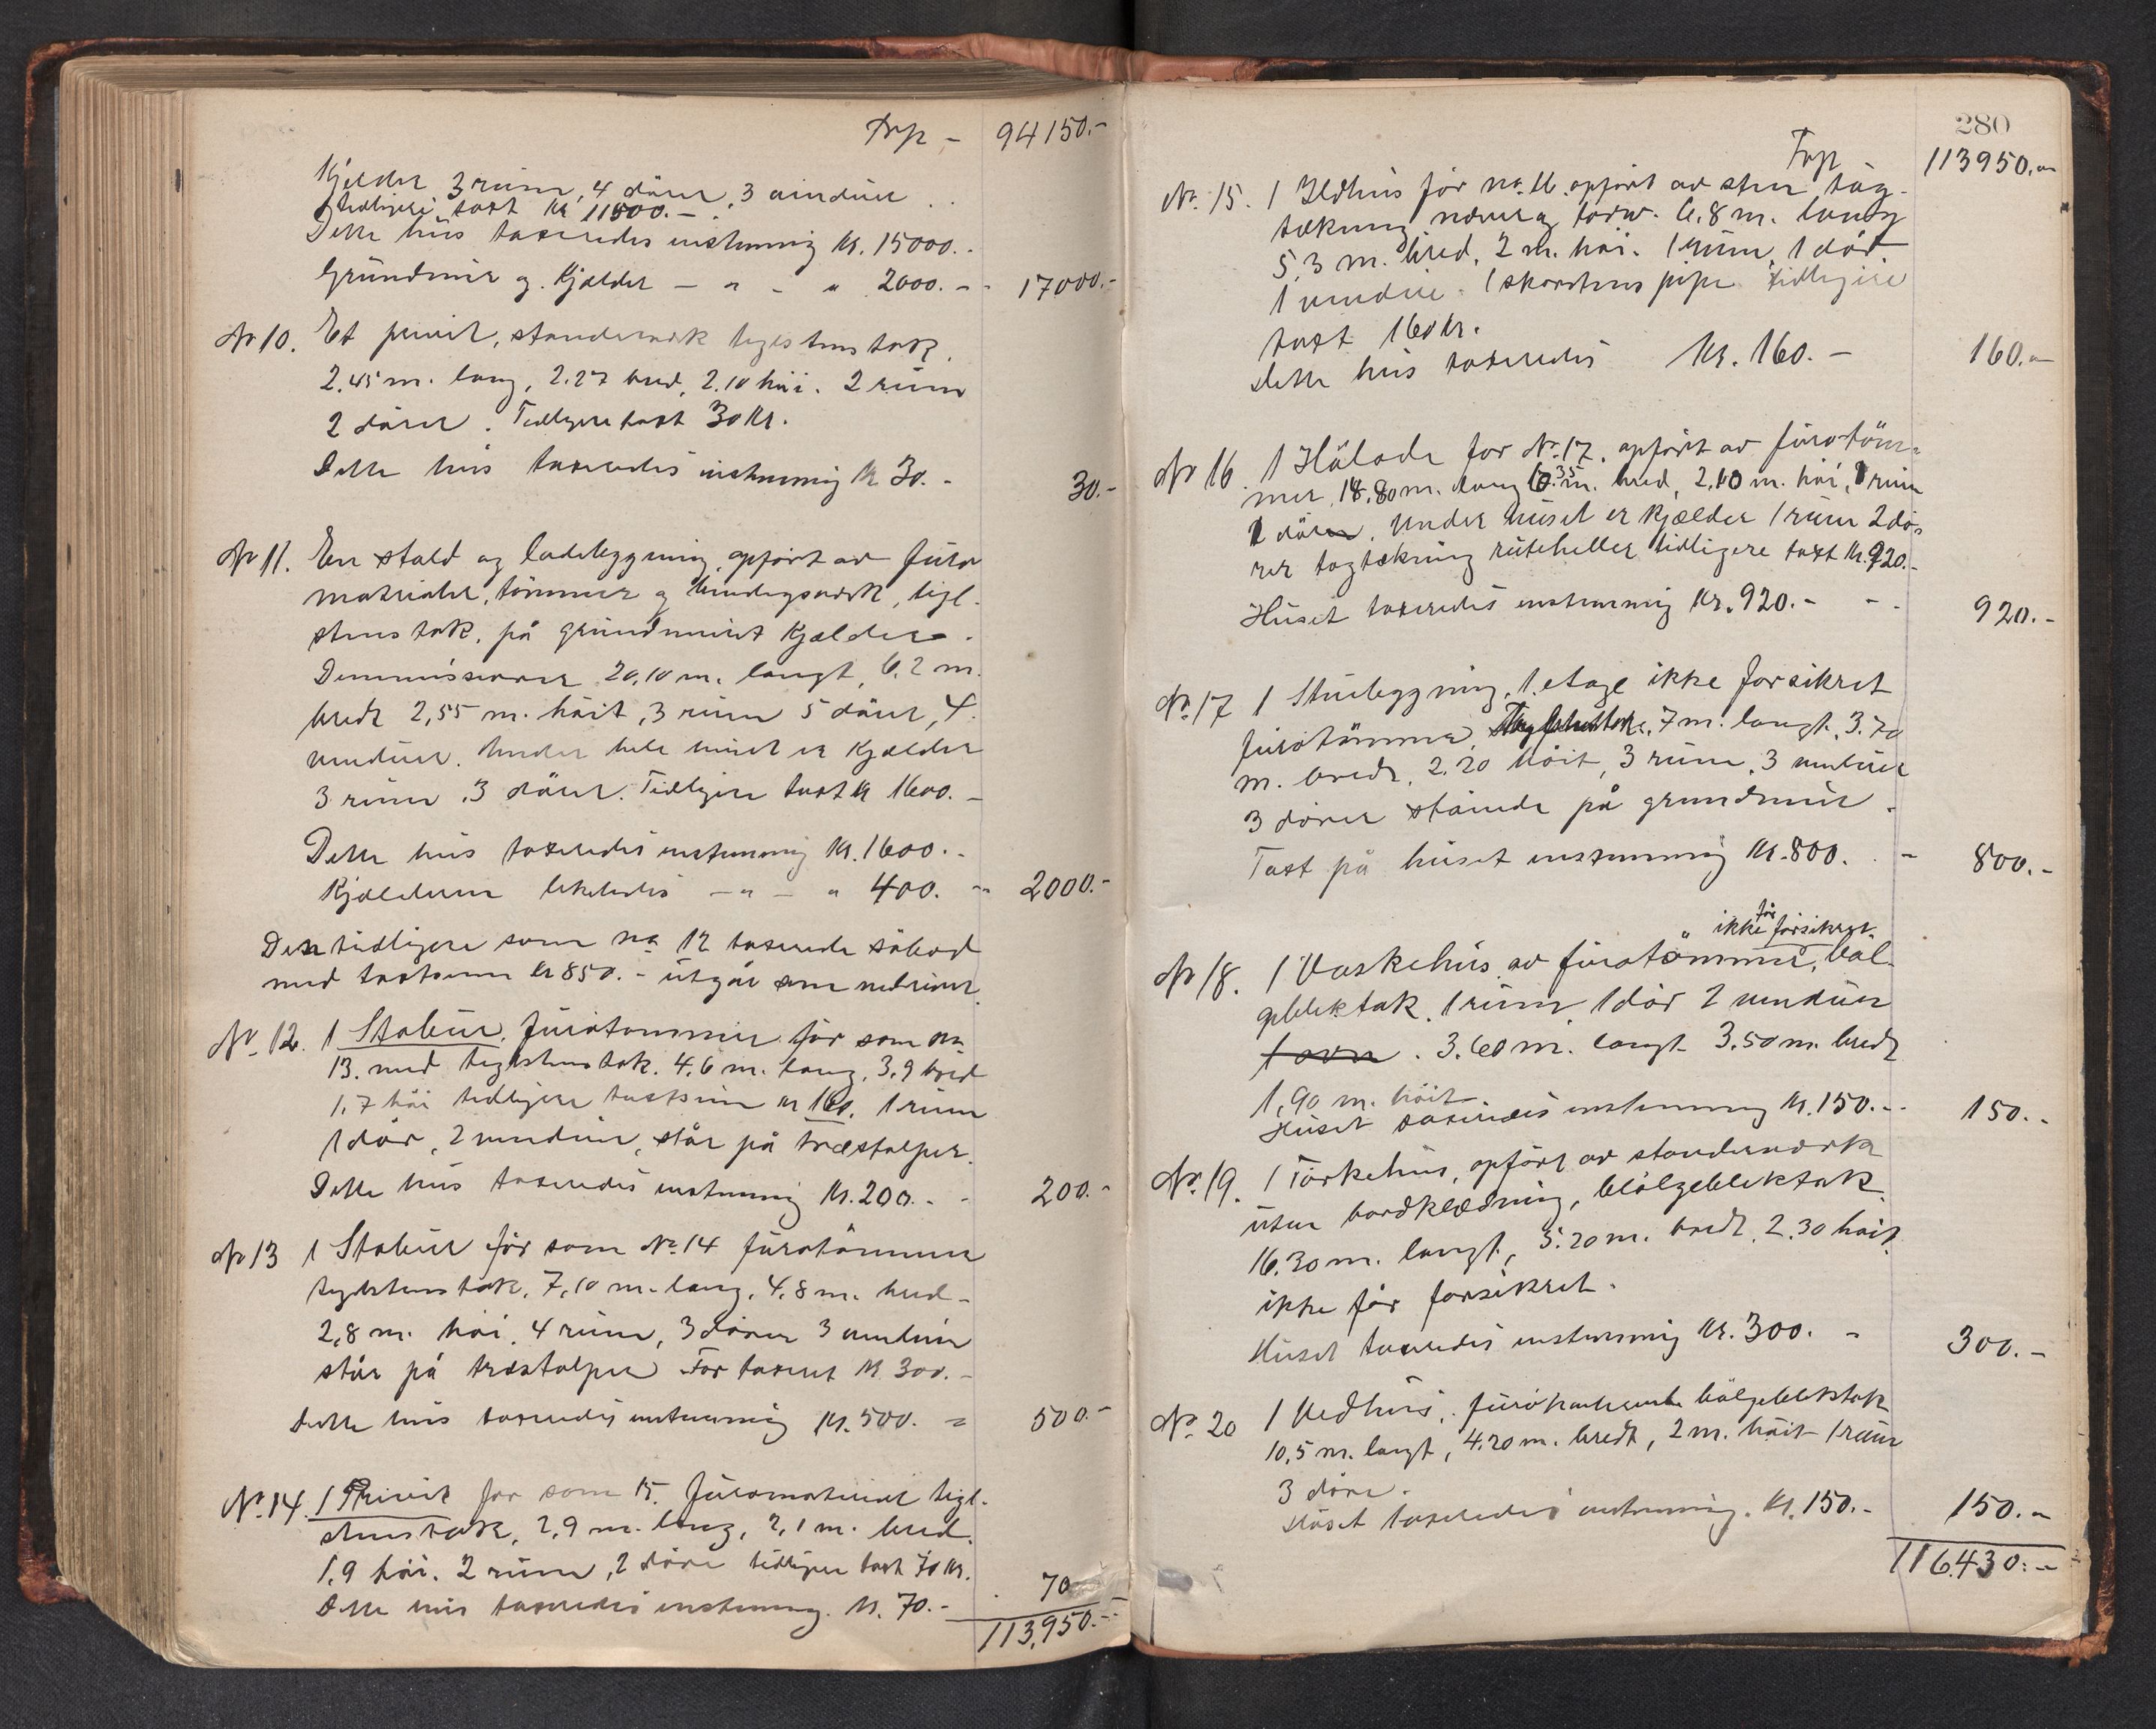 Trp - 94150.-
Kjelder 3 rum, 4 dörer, 3 vinduer
tidligere taxt kr 11500.-
Dette hus taxeredes enstemmig kr. 15000.-
Grundmur og Kjelder - " - " 2000.- - 17000.-
No 10. Et privet, standerværk teglstenstak,
2.45 m. lang, 2.27 bred, 2.10 höi. 2 rum
2 dörer. Tidligere taxt 30 kr.
Dette hus taxeredes enstemmig kr 30.- 30.-
No 11. En stald og ladebyggning, opfört av furu
materialer, tömmer og bindingsverk, tegl-
stenstak, på grundmuret Kjælder.
Demmissioner 20,10 m. langt, 6,2 m.
bredt 2,55 m. höit, 3 rum 5 dörer, 4
vinduer. Under hele huset er Kjælder
3 rum, 3 dörer. Tidligere taxt kr 1600.-
Dette hus taxeredes enstemmig kr. 1600.-
Kjælderen likeledes - " - " 400. - 2000.-
Den tidligere som no 12 taxerede sobod
med taxtsum kr 850.- utgår som nedrevet.
No. 12. 1 Stabur, furutømmer för som no
13. med teglstenstak. 4,6 m. lang, 3,9 bred
1,7 höi tidligere taxtsum kr 160. 1 rum
1 dör, 2 vinduer, står på træstolper.
Dette hus taxeredes enstemmig kr. 200.- - 200.-
No 13 1 Stabur för som No 14 furutömmer
teglstenstak, 7,10 m. lang, 4,8 m. bred -
2,8 m. höi. 4 rum, 3 dörer 3 vinduer
står på træstolper För taxeret kr 300.-
Dette hus taxeredes enstemmig kr. 500. = 500.-
No. 14. 1 Privet för som 15. furumaterial tegl-
stenstak, 2,9 m. lang, 2,1 m. bred.
1,9 höi. 2 rum, 2 döre tidligere taxt 70 kr.
Dette hus taxeredes enstemmig. kr. 70.- 70
113,950.-
280
Trp 113950.-
No. 15. 1 Ildhus för no. 16 opfört av sten, tag-
tækning næver og torv. 6,8 m. lang
5,3 m. bred, 2 m. höi. 1 rum, 1 dör.
1 vindue. 1 skorstenspipe tidligere
taxt 160 kr.
Dette hus taxeredes kr. 160.- 160.-
No 16. 1 Hölade for No. 17. opfört av furutöm-
mer, 18,80 m. lang 6.35 m. bred, 2,10 m. höi, 1 rum
1 dör. Under huset er kjælder 1 rum 2 dö-
rer tagtækning ruteheller tidligere taxt kr. 920.-
Huset taxeredes enstemmig kr. 920.- - - 920.-
No. 17 1 Stuebyggning, 1. etage ikke forsikret
furutömmer, 7 m. langt. 3.70
m. bredt, 2.20 höit, 3 rum, 3 vinduer
3 dörer stående på grundmur.
Taxt på huset enstemmig kr. 800. - 800.-
ikke för forsikret.
No 18. 1 Vaskehus av furutömmer, böl-
geblektak. 1 rum 1 dör 2 vinduer
1 ovn. 3.60 m. langt 3.50 m. bredt
1,90 m. höit
Huset taxeredes enstemmig kr. 150.- 150.-
No. 19. 1 Törkehus, opfört av standerværk
uten bordklædning, bölgeblektak
16.30 m. langt, 5.20 m. bredt. 2.30 höit.
ikke för forsikret.
Huset taxeredes enstemmig kr. 300.- 300.-
No. 20 1 Vedhus, bölgeblektak
10,5 m. langt, 4.20 m. bredt, 2 m. höit 1 rum
3 döre.
Huset taxeredes enstemmig. kr. 150.- 150.-
116.430.-